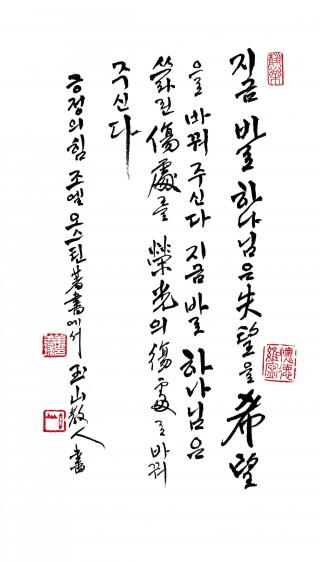 지금 바로 하나님은 失望을 希望
으로 바꿔 주신다 지금 바로 하나님은
쓰라린 傷處를 榮光의 傷處로 바꿔
주신다
긍정의 힘 조엘 오스틴 著書에서 玉山散人 書